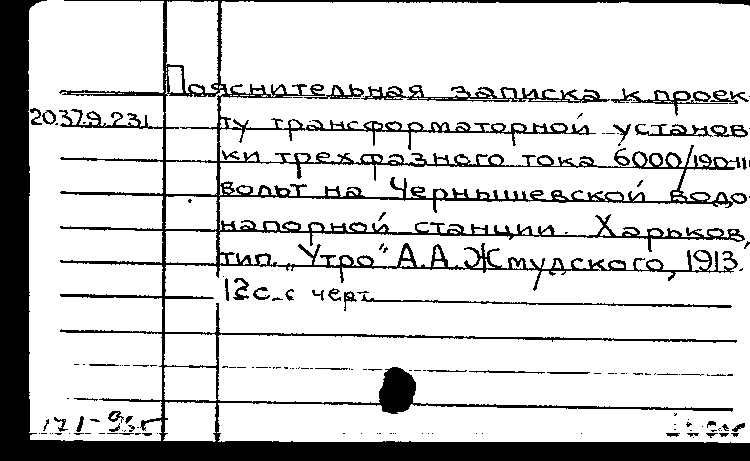 Пояснительная записка к проек-
20379.231 ту трансформаторной установ-
ки трехфазного тока 6000/190-11
вольт на Чернышевской водо-
напорной станции. Харьков,
тип. „Утро" А.А. Жмудского, 1913.
12с. с черт.
171-95г